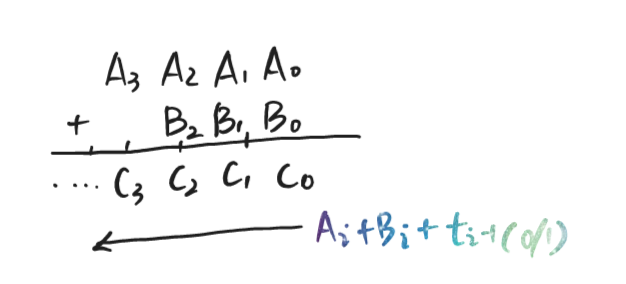 A₃ A₂ A₁ A₀
+ B₂ B₁ B₀
..... C₃ C₂ C₁ C₀
Aᵢ+Bᵢ+tᵢ₋₁(0/1)